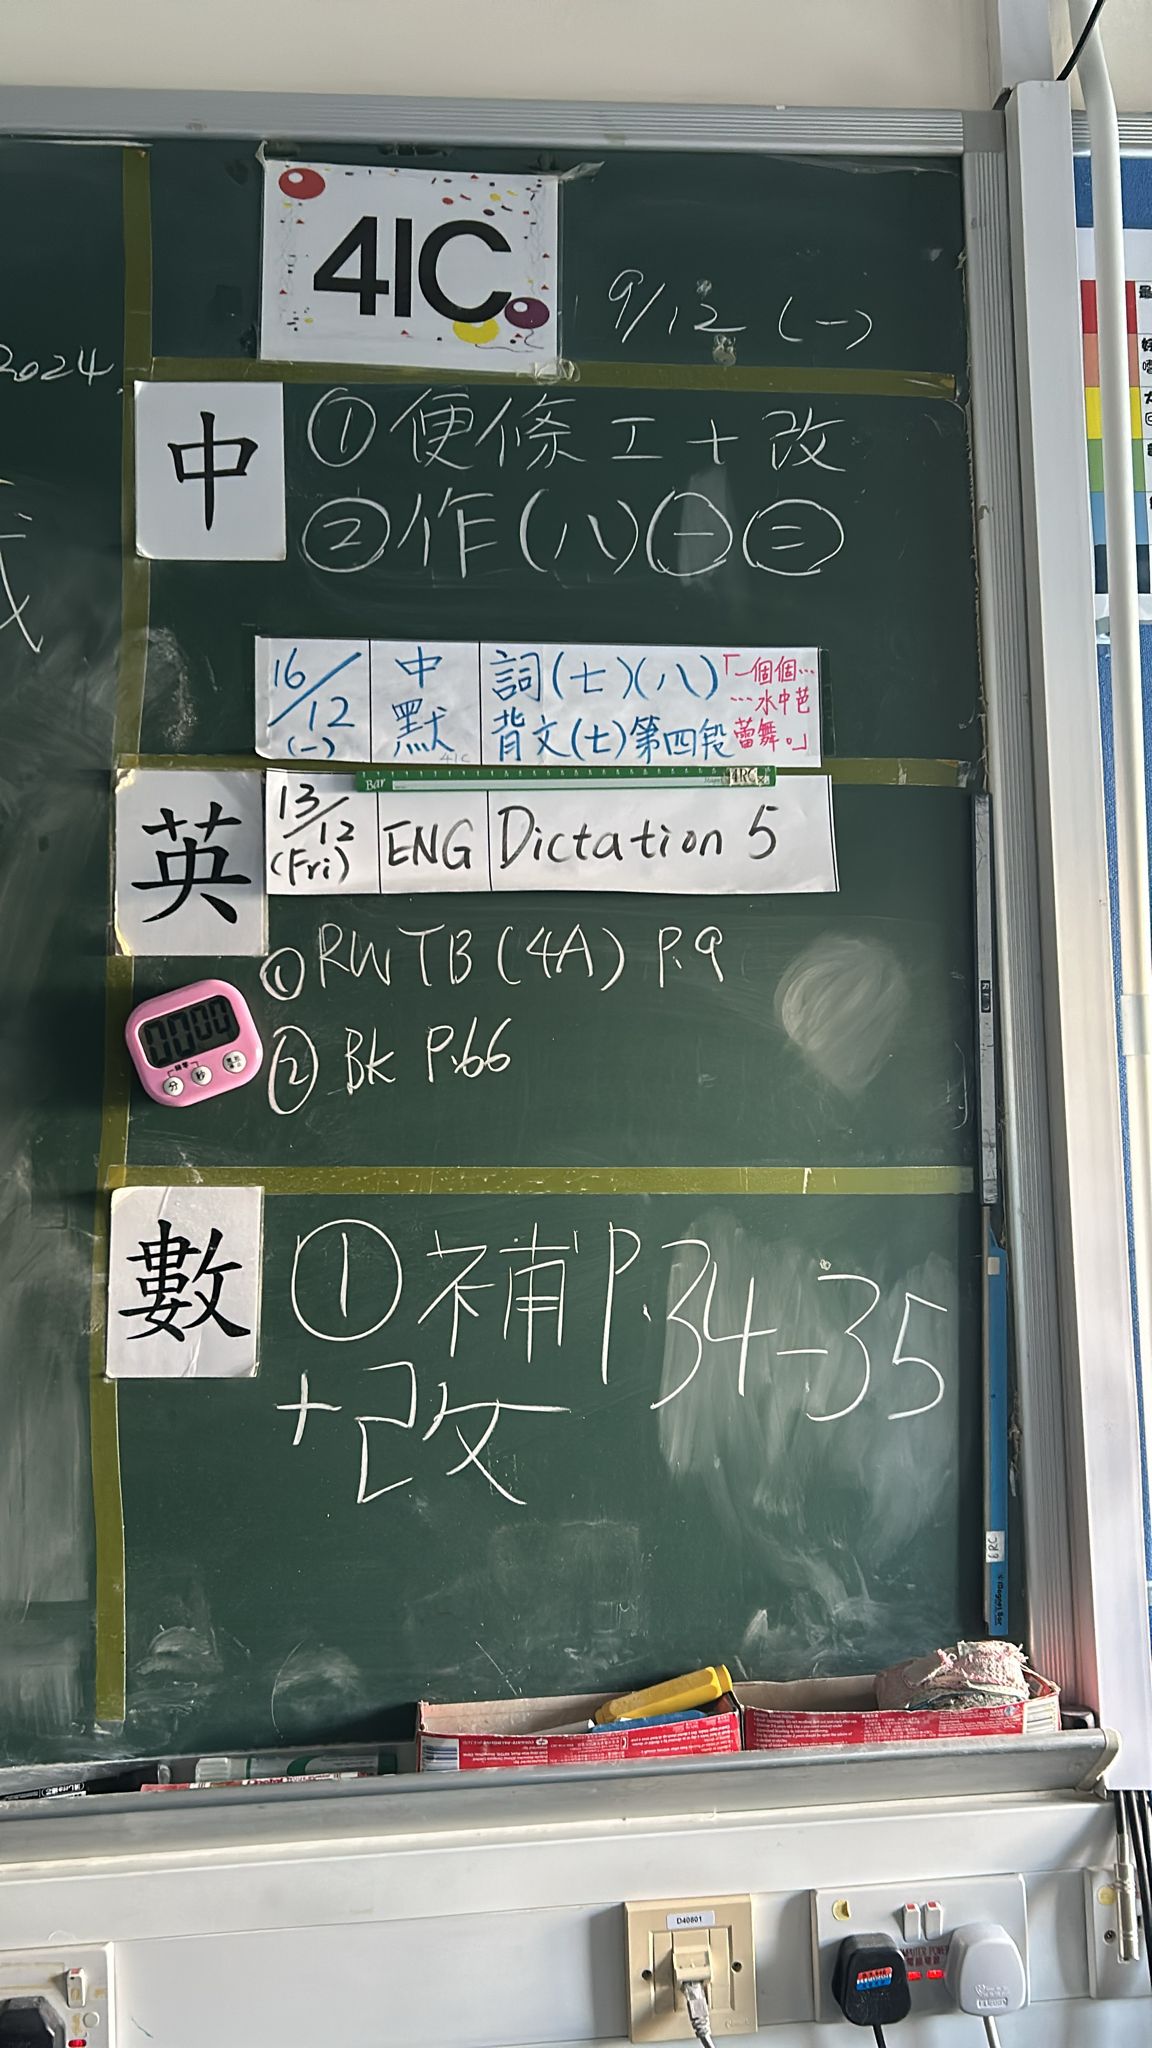 41C
9/12 (一)
2024
中
① 便條工+改
② 作(八)㊀㊂
16/12 (一) 中默 詞(七)(八) 背文(七)第四段 「一個個…
…水中芭
蕾舞。」
41C
Bar 4RC
英
13/12 (Fri) ENG Dictation 5
① RW TB (4A) P.9
② BK P.66
00:00
分 秒
數
① 補 P.34-35
+改
6RC
D40801
COMPUTER POWER